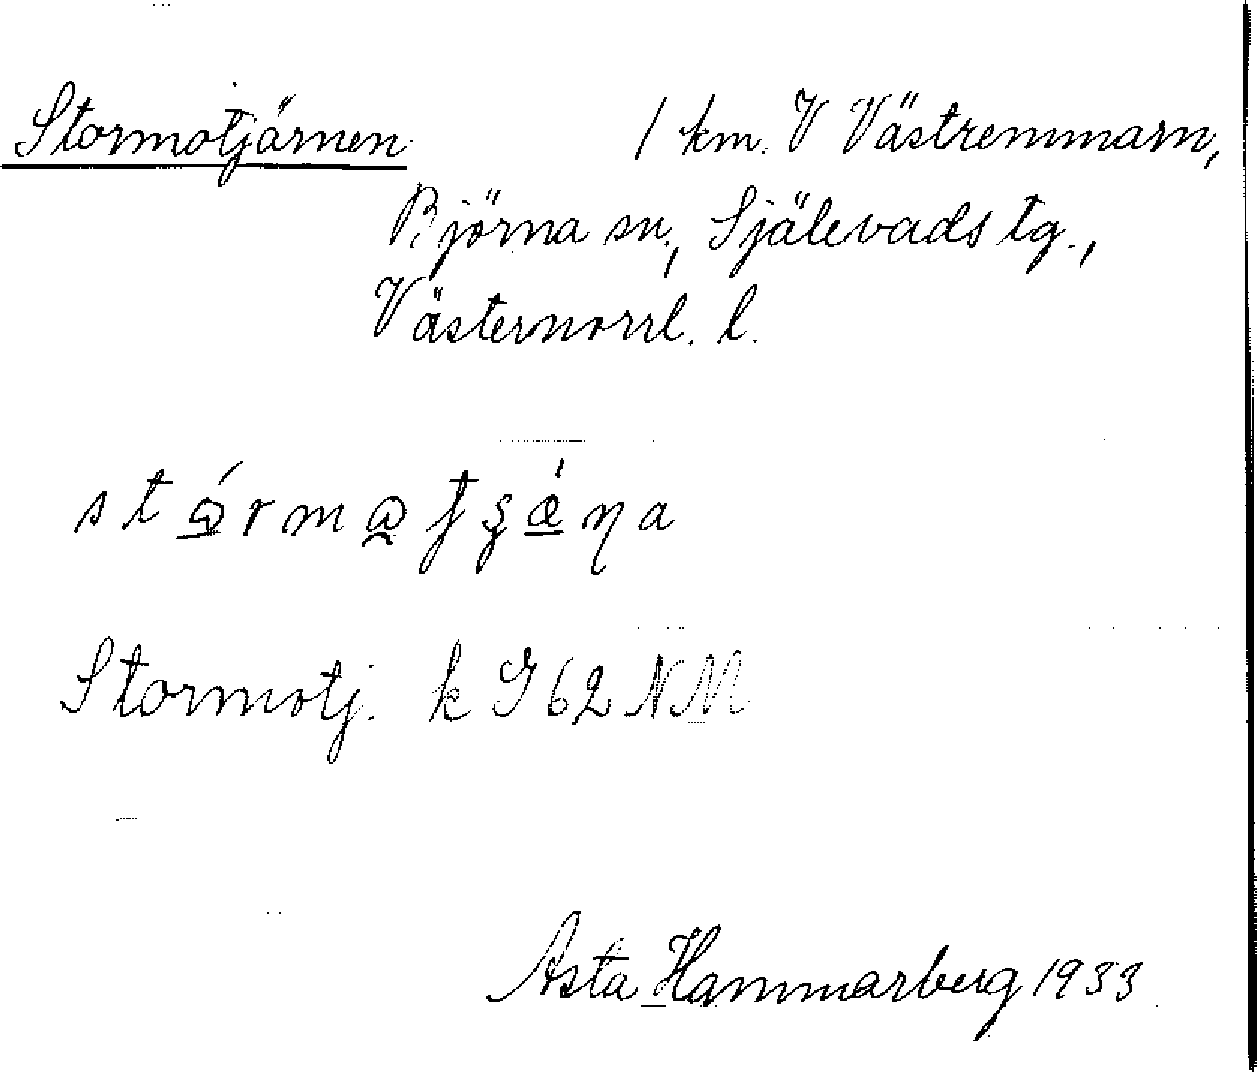 Stormotjärnen 1 km. V Västremmarn,
Björna sn, Själevads tg.,
Västernorrl. l.
Stormotj. k G 62 NM
Asta Hammarberg 1933